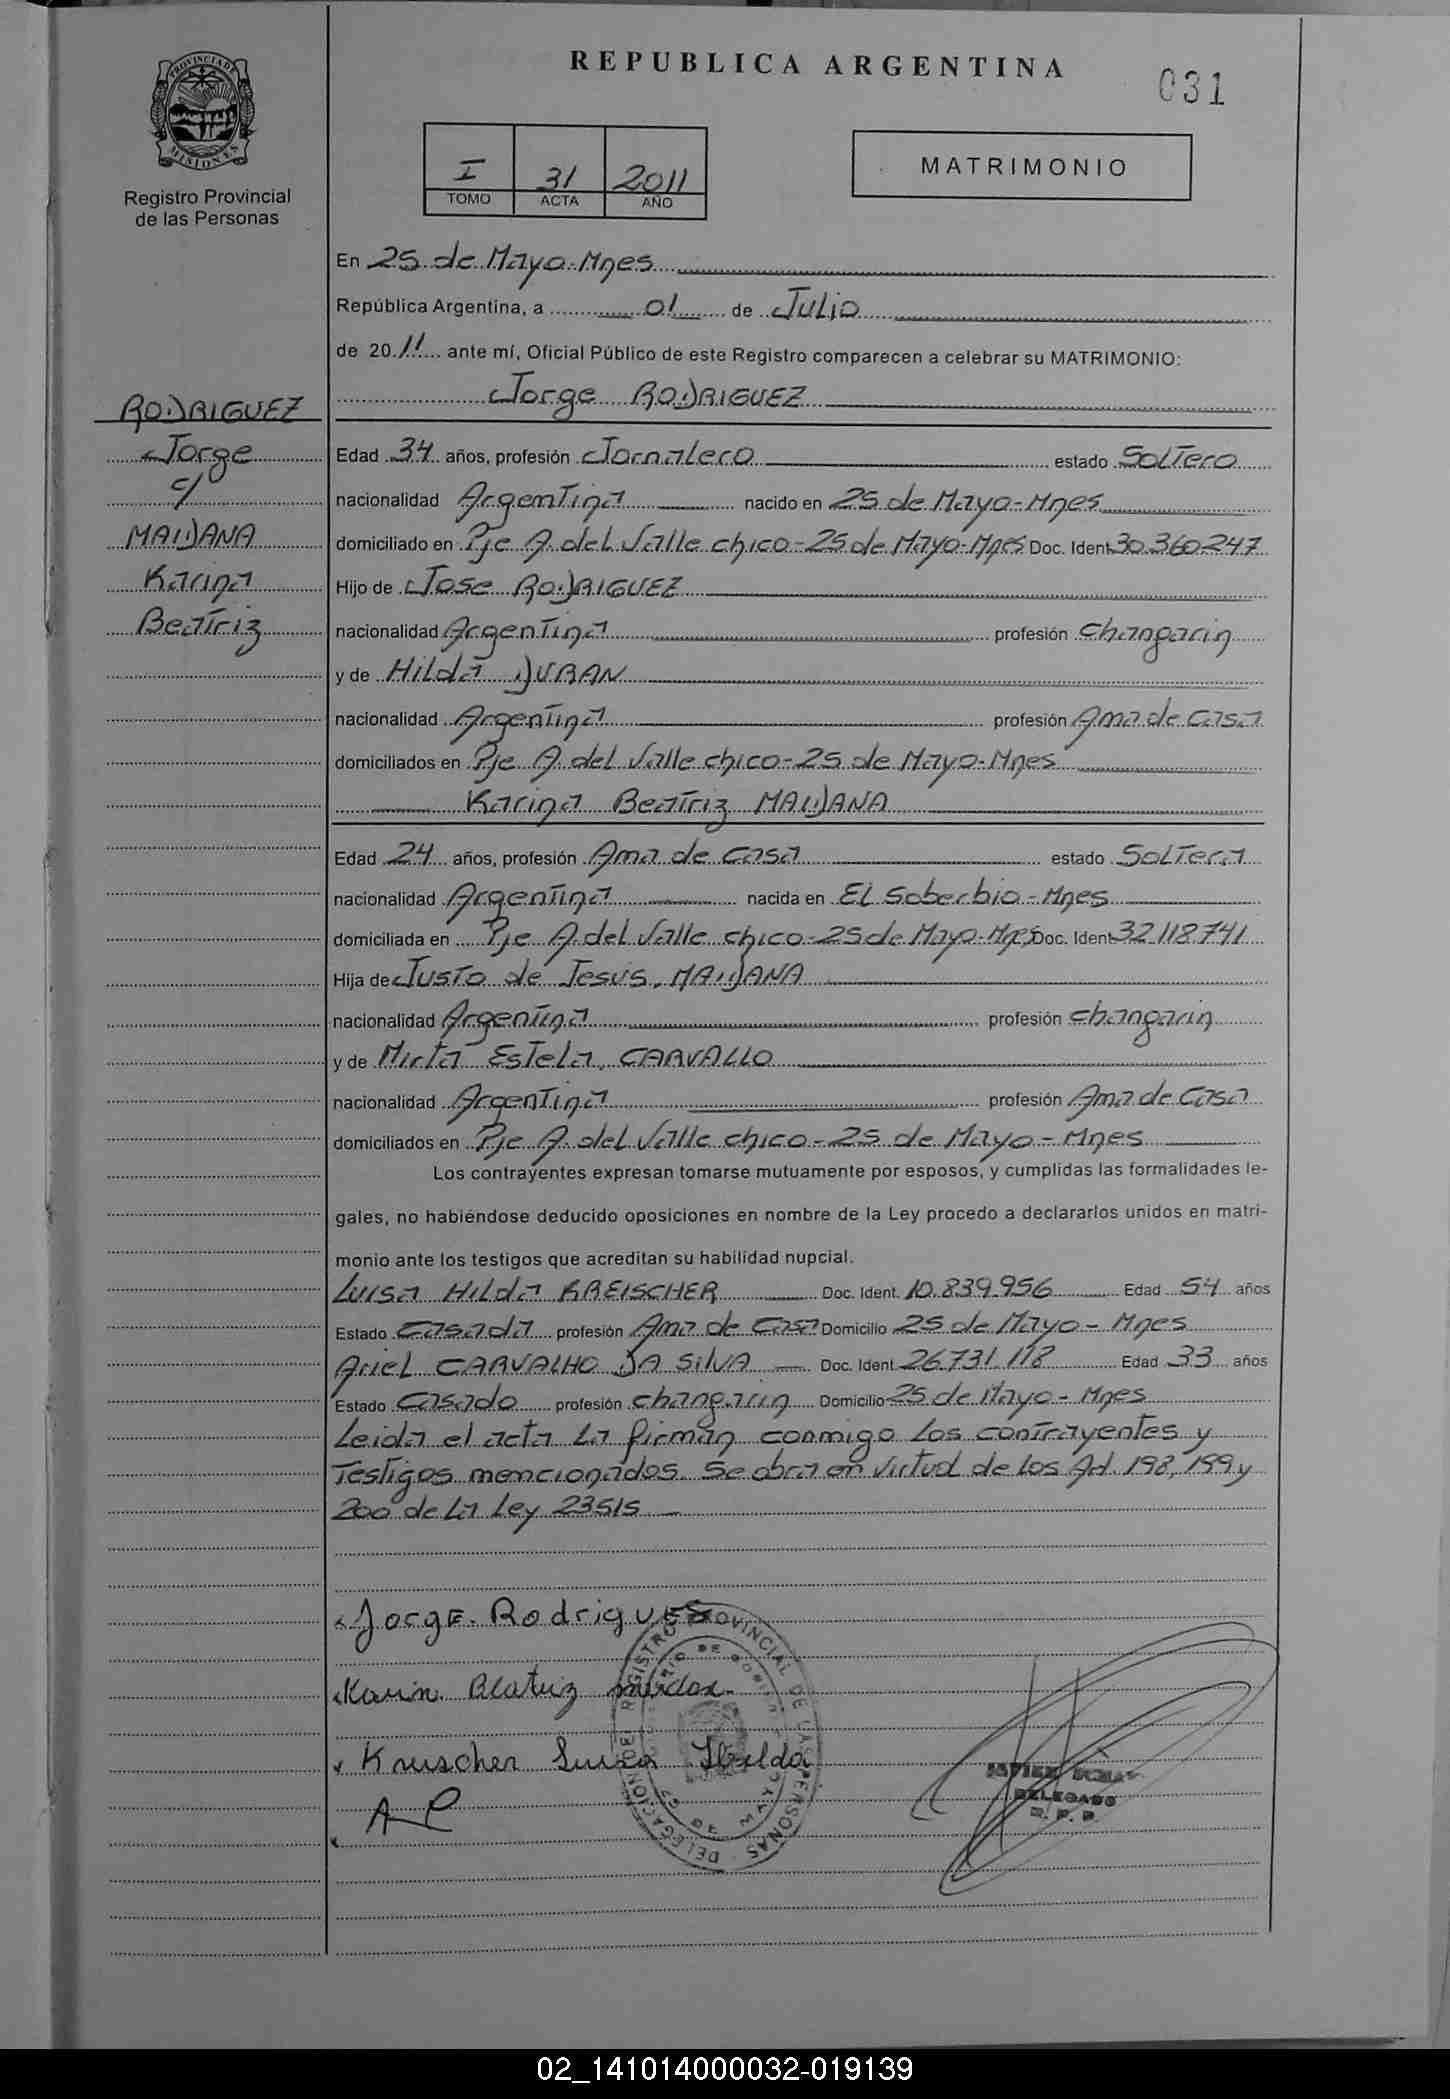 REPUBLICA ARGENTINA
031
PROVINCIA DE MISIONES
Registro Provincial
de las Personas
I 31 2011
TOMO ACTA AÑO
MATRIMONIO
En 25 de Mayo-Mnes
República Argentina, a 01 de Julio
de 2011 ante mí, Oficial Público de este Registro comparecen a celebrar su MATRIMONIO:
Jorge RODRIGUEZ
RODRIGUEZ
Jorge
c/
MAIDANA
Karina
Beatriz
Edad 34 años, profesión Jornalero estado Soltero
nacionalidad Argentina nacido en 25 de Mayo-Mnes
domiciliado en Pje A. del Valle chico-25 de Mayo-Mnes Doc. Ident. 30.360.247
Hijo de Jose RODRIGUEZ
nacionalidad Argentina profesión Changarin
y de Hilda DURAN
nacionalidad Argentina profesión Ama de Casa
domiciliados en Pje A. del Valle chico-25 de Mayo-Mnes
Karina Beatriz MAIDANA
Edad 24 años, profesión Ama de Casa estado Soltera
nacionalidad Argentina nacida en El Soberbio-Mnes
domiciliada en Pje A. del Valle chico-25 de Mayo-Mnes Doc. Ident. 32.118.741
Hija de Justo de Jesus, MAIDANA
nacionalidad Argentina profesión changarin
y de Mirta Estela, CARVALLO
nacionalidad Argentina profesión Ama de Casa
domiciliados en Pje A. del Valle chico-25 de Mayo-Mnes
Los contrayentes expresan tomarse mutuamente por esposos, y cumplidas las formalidades le-
gales, no habiéndose deducido oposiciones en nombre de la Ley procedo a declararlos unidos en matri-
monio ante los testigos que acreditan su habilidad nupcial.
Luisa Hilda KREISCHER Doc. Ident. 10.839.956 Edad 54 años
Estado Casada profesión Ama de Casa Domicilio 25 de Mayo-Mnes
Ariel CARVALHO DA SILVA Doc. Ident. 26.731.118 Edad 33 años
Estado Casado profesión changarin Domicilio 25 de Mayo-Mnes
Leida el acta La firman conmigo los contrayentes y
Testigos mencionados. Se obra en Virtud de los Art. 198, 199 y
200 de La Ley 23515
Jorge Rodrigues
Karin Beatriz
Kreischer Luisa Hilda
AC
DELEGACION DEL REGISTRO PROVINCIAL DE LAS PERSONAS
25 DE MAYO
JAVIER
DELEGADO
R. P. P.
02_141014000032-019139